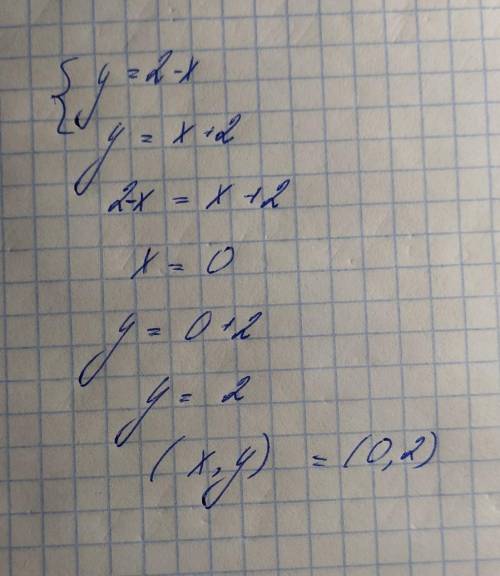 { y = 2-x
y = x+2
2-x = x+2
x = 0
y = 0+2
y = 2
(x,y) = (0,2)